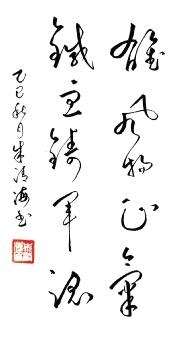 雄风扬正气
铁血铸军魂
乙巳秋月朱清海书